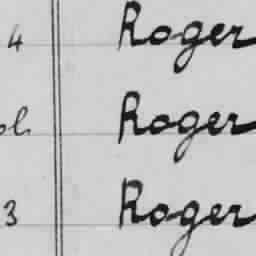 4 Roger
Roger
3 Roger